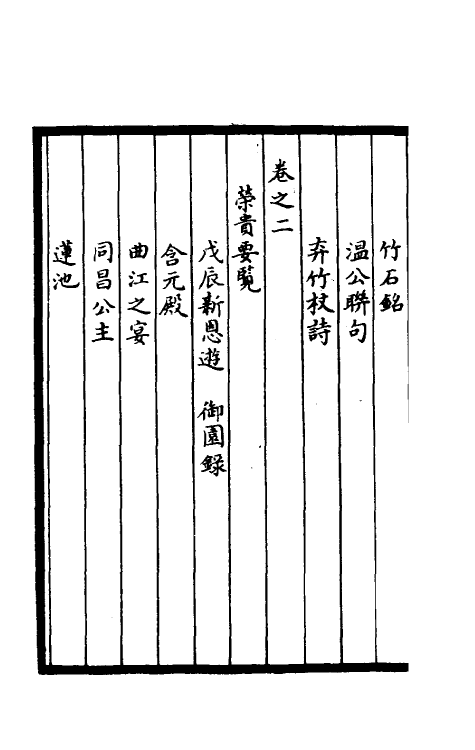 竹石銘
温公聯句
弃竹杖詩
卷之二
榮貴要覽
戊辰新恩遊　御園錄
含元殿
曲江之宴
同昌公主
蓮池